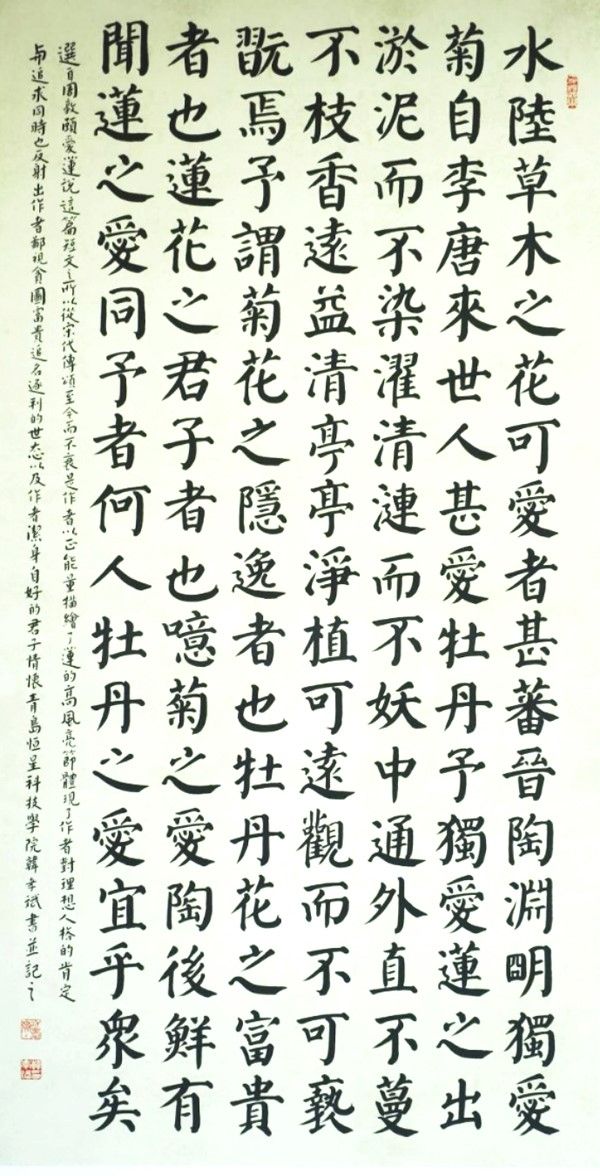 水陸草木之花可愛者甚蕃晉陶淵明獨愛
菊自李唐來世人甚愛牡丹予獨愛蓮之出
淤泥而不染濯清漣而不妖中通外直不蔓
不枝香遠益清亭亭淨植可遠觀而不可褻
翫焉予謂菊花之隱逸者也牡丹花之富貴
者也蓮花之君子者也噫菊之愛陶後鮮有
聞蓮之愛同予者何人牡丹之愛宜乎衆矣
選自周敦頤愛蓮說這篇短文之所以從宋代傳頌至今而不衰是作者以正能量描繪了蓮的高風亮節體現了作者對理想人格的肯定
与追求同時也反射出作者鄙視貪圖富貴追名逐利的世态以及作者潔身自好的君子情懷青島恒星科技學院韓書並記之